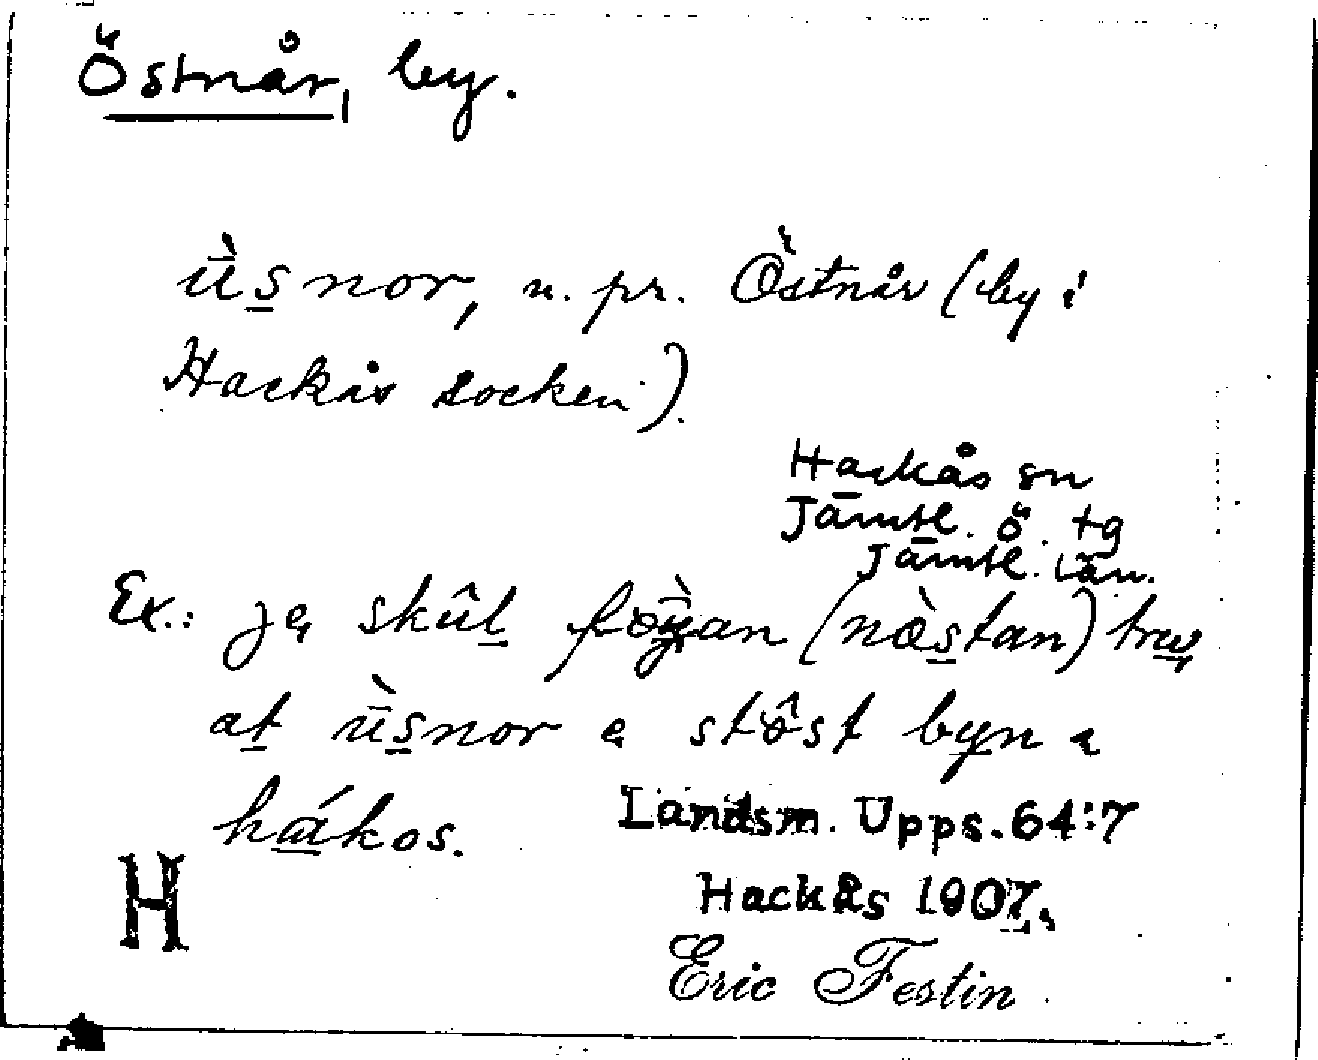 Östnår, by.
ǜs̠nor, n. pr. Östnår (by i
Hackås socken).
Hackås sn
Jämtl. ö. tg
Jämtl. län.
Ex.: skûl̠ (næ̀s̠tan)
at̠ ǜs̠nor e stôst byn a
hákos.
Landsm. Upps. 64:7
Hackås 1907.
H
Eric Festin